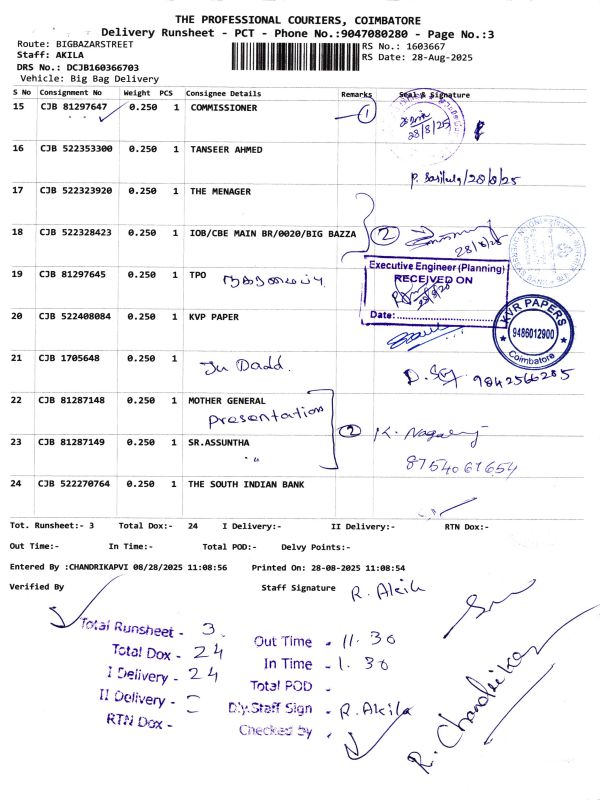 THE PROFESSIONAL COURIERS, COIMBATORE
Delivery Runsheet - PCT - Phone No.:9047080280 - Page No.:3
Route: BIGBAZARSTREET
RS No.: 1603667
Staff: AKILA
RS Date: 28-Aug-2025
DRS No.: DCJB160366703
Vehicle: Big Bag Delivery
S No Consignment No Weight PCS Consignee Details Remarks Seal & Signature
15 CJB 81297647 0.250 1 COMMISSIONER 1
28/8/25
16 CJB 522353300 0.250 1 TANSEER AHMED
17 CJB 522323920 0.250 1 THE MENAGER
18 CJB 522328423 0.250 1 IOB/CBE MAIN BR/0020/BIG BAZZA 2
28/8/25
19 CJB 81297645 0.250 1 TPO
Executive Engineer (Planning)
RECEIVED ON
Date:
20 CJB 522408084 0.250 1 KVP PAPER
KVR PAPERS
9486012900
Coimbatore
21 CJB 1705648 0.250 1
9842566285
22 CJB 81287148 0.250 1 MOTHER GENERAL
presentation
2 K. Nagaraj
23 CJB 81287149 0.250 1 SR.ASSUNTHA
8754061654
24 CJB 522270764 0.250 1 THE SOUTH INDIAN BANK
Tot. Runsheet:- 3 Total Dox:- 24 I Delivery:- II Delivery:- RTN Dox:-
Out Time:- In Time:- Total POD:- Delvy Points:-
Entered By :CHANDRIKAPVI 08/28/2025 11:08:56 Printed On: 28-08-2025 11:08:54
Verified By Staff Signature R. Akila
Total Runsheet - 3
Total Dox - 24
I Delivery - 24
II Delivery -
RTN Dox -
Out Time - 11.30
In Time - 1.30
Total POD -
Dly.Staff Sign - R. Akila
Checked by -
R. Chandrika